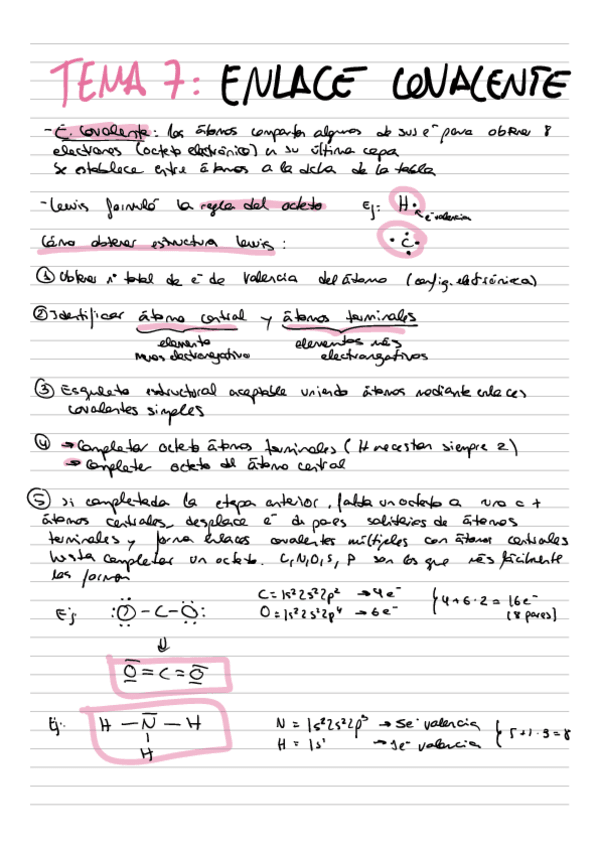 TEMA 7: ENLACE COVALENTE
- E. Covalente: los átomos comparten algunos de sus e⁻ para obtener 8
electrones (octeto electrónico) en su última capa
Se establece entre átomos a la dcha de la tabla
- Lewis formuló la regla del octeto Ej: H· e⁻ valencia
Cómo obtener estructura Lewis: ·C·
① Obtener nº total de e⁻ de valencia del átomo (config. electrónica)
② Identificar átomo central y átomos terminales
elemento elementos más
menos electronegativo electronegativos
③ Esqueleto estructural aceptable uniendo átomos mediante enlaces
covalentes simples
④ → Completar octeto átomos terminales (H necesitan siempre 2)
→ Completar octeto del átomo central
⑤ Si completada la etapa anterior, falta un octeto a uno o +
átomos centrales, desplace e⁻ de pares solitarios de átomos
terminales y forma enlaces covalentes múltiples con átomos centrales
hasta completar un octeto. C, N, O, S, P son los que más fácilmente
los forman
Ej :O - C - O: C = 1s²2s²2p² → 4e⁻
O = 1s²2s²2p⁴ → 6e⁻ 4+6·2 = 16e⁻
(8 pares)
O = C = O
Ej: H - N - H N = 1s²2s²2p³ → 5e⁻ valencia
H H = 1s¹ → 1e⁻ valencia 5+1·3=8